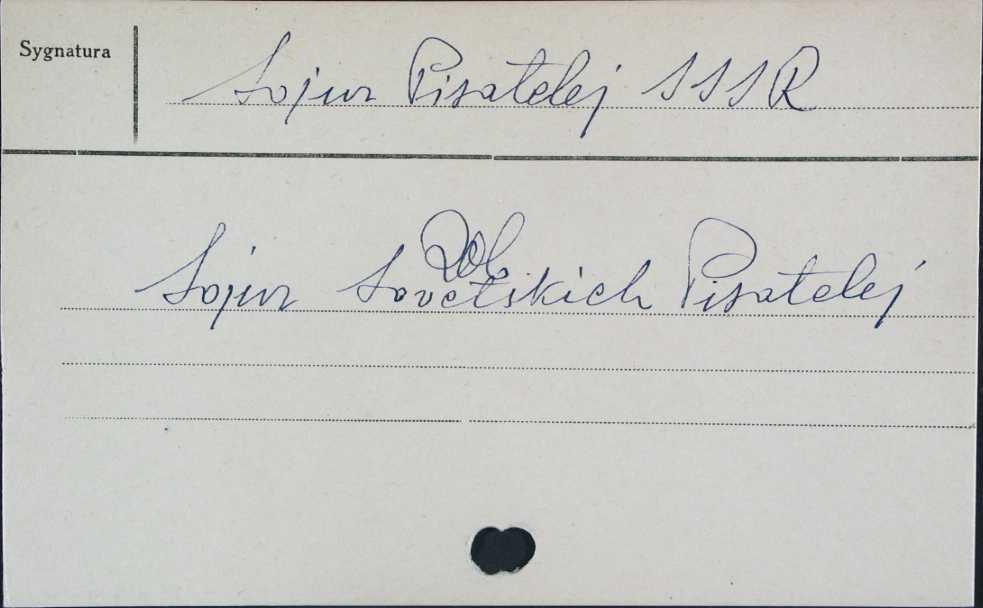 Sygnatura
Sojuz Pisatelej SSSR
Dob.
Sojuz Sovetskich Pisatelej